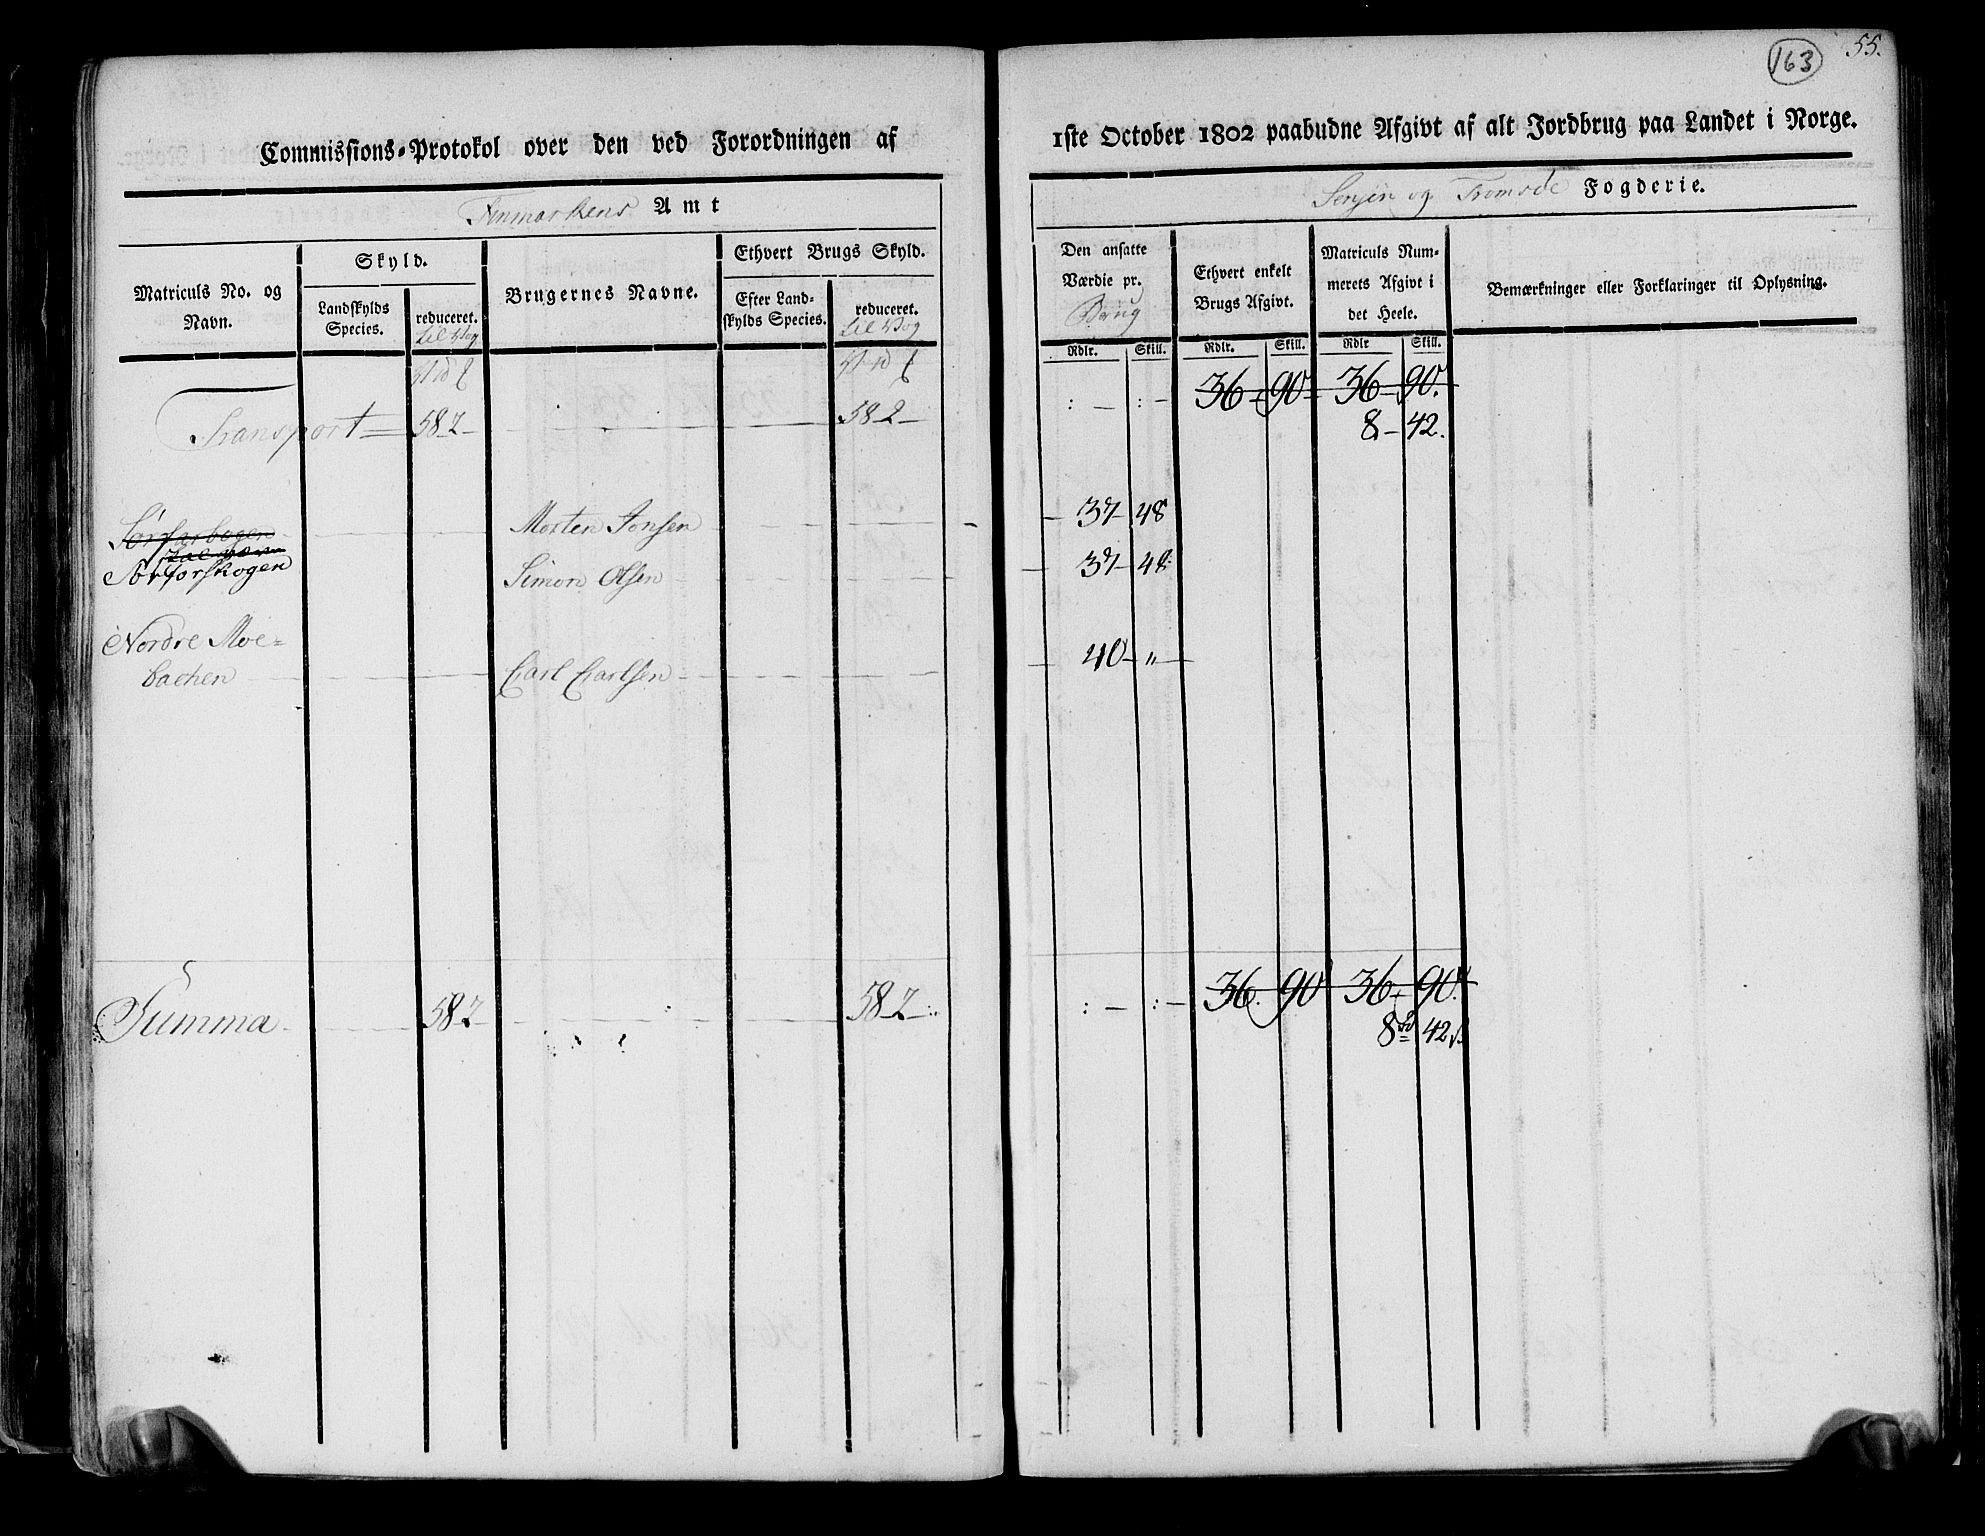 163 55.
Commissions-Protokol over den ved Forordningen af 1ste October 1802 paabudne Afgivt af alt Jordbrug paa Landet i Norge.
Finmarkens Amt
Senjen og Tromsöe Fogderie.
Matriculs No. og Navn.
Skyld.
Landskylds Species.
reduceret.
til Vog
Brugernes Navne.
Ethvert Brugs Skyld.
Efter Landskylds Species.
reduceret.
til Vog
Den ansatte Værdie pr.
Brug
Ethvert enkelt Brugs Afgivt.
Matriculs Nummerets Afgivt i det Heele.
Bemærkninger eller Forklaringer til Oplysning.
Rdlr. Skill. Rdlr. Skill. Rdlr Skill.
Transport 58 2 58 2 : — : — 36 90 36 90.
8 — 42.
Sörfarbogen Morten Jonsen 37 — 48
Sörforskogen Simon Olsen 37 — 48
Nordre Moe=
bachen Carl Carlsen 40 — "
Summa 58 2 58 2 : — : — 36. 90 36 90.
8 rd 42 s.